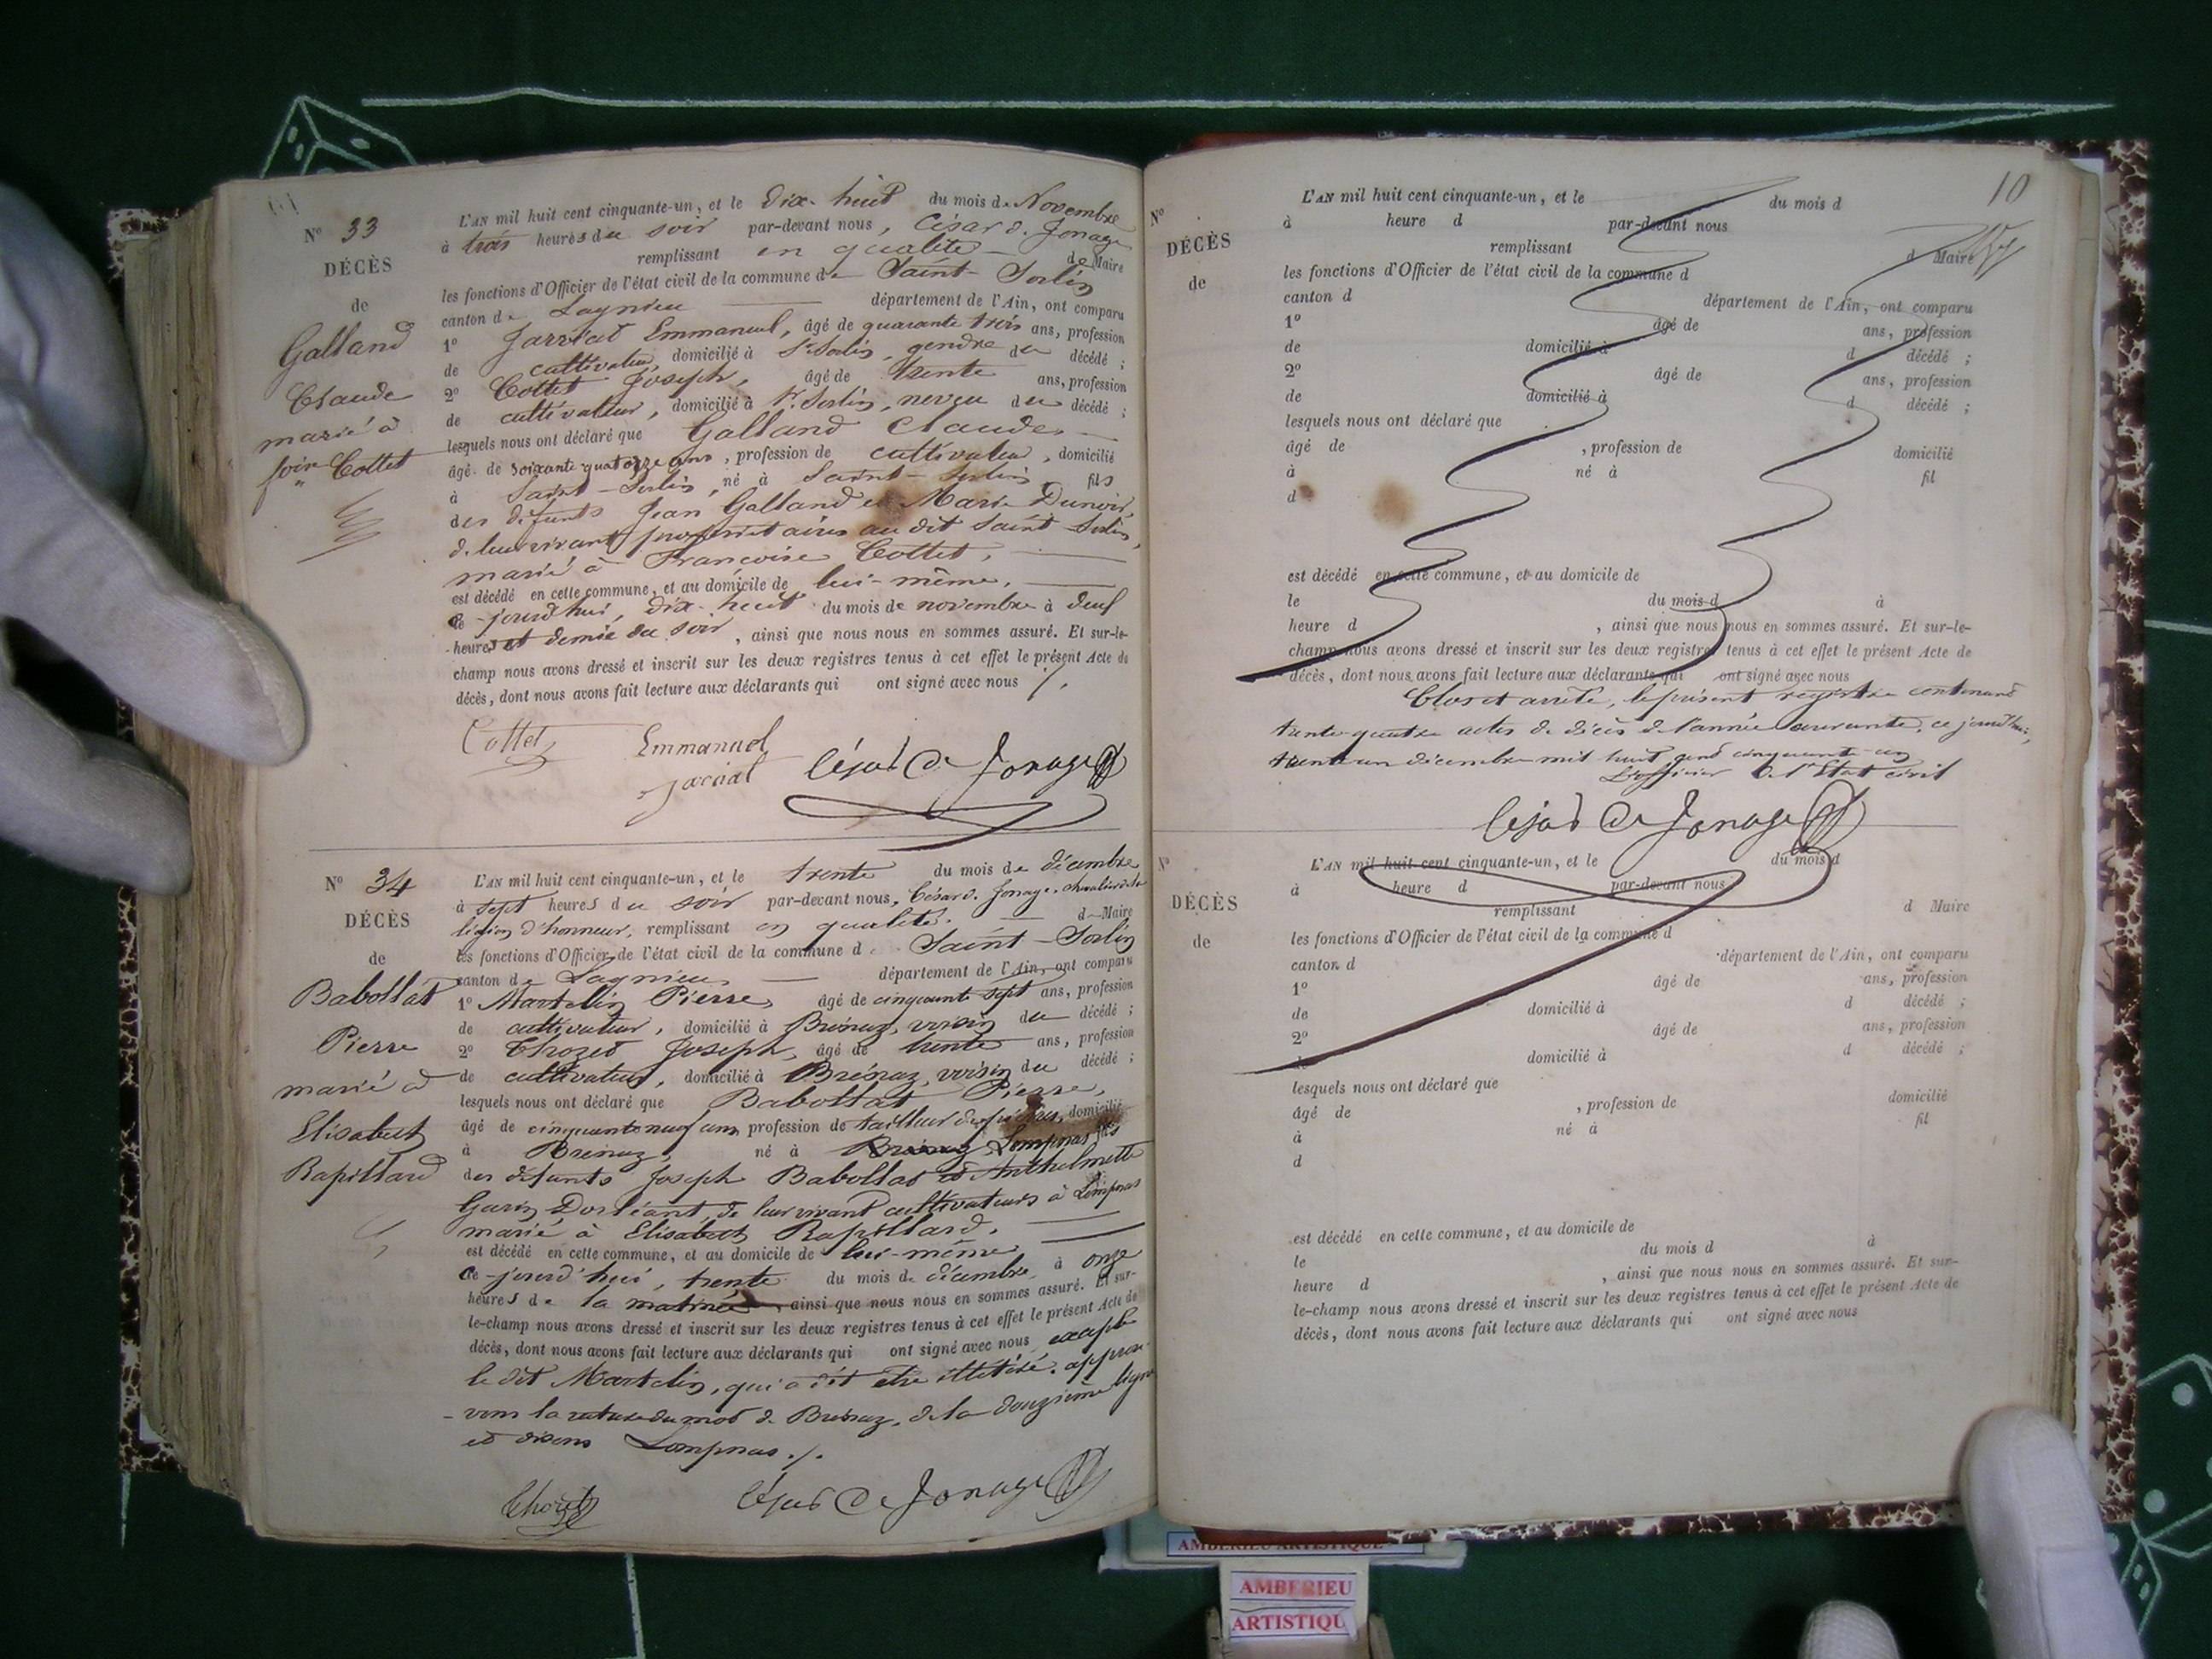 N° 33
DÉCÈS
de
Galland
Claude
marié à
Cottet
L'AN mil huit cent cinquante-un, et le dix-huit du mois de Novembre
à trois heures du soir par-devant nous, César de Jonage
remplissant en qualité de Maire
les fonctions d'Officier de l'état civil de la commune de Saint-Sorlin
canton de Lagnieu département de l'Ain, ont comparu
1° Jarriat Emmanuel, âgé de quarante trois ans, profession
de cultivateur, domicilié à St Sorlin, gendre du décédé ;
2° Cottet Joseph, âgé de trente ans, profession
de cultivateur, domicilié à St Sorlin, neveu du décédé ;
lesquels nous ont déclaré que Galland Claude
âgé de soixante quatorze ans, profession de cultivateur, domicilié
à Saint-Sorlin, né à Saint-Sorlin fils
des défunts Jean Galland et Marie Dunoir,
de leur vivant propriétaires au dit Saint Sorlin,
marié à Françoise Cottet,
est décédé en cette commune, et au domicile de lui-même,
ce-jourd'hui, dix-huit du mois de novembre à deux
heures et demie du soir, ainsi que nous nous en sommes assuré. Et sur-le-
champ nous avons dressé et inscrit sur les deux registres tenus à cet effet le présent Acte de
décès, dont nous avons fait lecture aux déclarants qui ont signé avec nous ./.
Cottet Emmanuel jarriat César de Jonage
N° 34
DÉCÈS
de
Babollat
Pierre
marié à
Elisabeth
Rapillard
L'AN mil huit cent cinquante-un, et le trente du mois de décembre
à sept heures du soir par-devant nous, César de Jonage, chevalier de la
légion d'honneur, remplissant en qualité de Maire
les fonctions d'Officier de l'état civil de la commune de Saint-Sorlin
canton de Lagnieu département de l'Ain, ont comparu
1° Martelin Pierre, âgé de cinquante sept ans, profession
de cultivateur, domicilié à Brénaz, voisin du décédé ;
2° Thozet Joseph, âgé de trente ans, profession
de cultivateur, domicilié à Brénaz, voisin du décédé ;
lesquels nous ont déclaré que Babollat Pierre,
âgé de cinquante neuf ans, profession de tailleur de pierres, domicilié
à Brénaz, né à Brénaz Lompnas fils
des défunts Joseph Babollat et Anthelmette
Garin Dorléant, de leur vivant cultivateurs à Lompnas
marié à Elisabeth Rapillard,
est décédé en cette commune, et au domicile de lui-même
ce-jourd'hui, trente du mois de décembre, à onze
heures de la matinée, ainsi que nous nous en sommes assuré. Et sur-
le-champ nous avons dressé et inscrit sur les deux registres tenus à cet effet le présent Acte de
décès, dont nous avons fait lecture aux déclarants qui ont signé avec nous excepté
le dit Martelin, qui a dit être illétéré. approu-
-vons la rature du mot de Brénaz, de la douzième ligne
et disons Lompnas ./.
Thozet César de Jonage
10
N°
DÉCÈS
de
L'AN mil huit cent cinquante-un, et le du mois d
à heure d par-devant nous
remplissant d Maire
les fonctions d'Officier de l'état civil de la commune d
canton d département de l'Ain, ont comparu
1° âgé de ans, profession
de domicilié à d décédé ;
2° âgé de ans, profession
de domicilié à d décédé ;
lesquels nous ont déclaré que
âgé de , profession de domicilié
à né à fil
d
est décédé en cette commune, et au domicile de
le du mois d à
heure d , ainsi que nous nous en sommes assuré. Et sur-le-
champ nous avons dressé et inscrit sur les deux registres tenus à cet effet le présent Acte de
décès, dont nous avons fait lecture aux déclarants qui ont signé avec nous
Clos et arrêté, le présent registre contenant
trente-quatre actes de décès de l'année courante, ce jourd'hui,
trente un décembre mil huit cent cinquante-un
L'officier de l'Etat civil
César de Jonage
N°
DÉCÈS
de
L'AN mil huit cent cinquante-un, et le du mois d
à heure d par-devant nous
remplissant d Maire
les fonctions d'Officier de l'état civil de la commune d
canton d département de l'Ain, ont comparu
1° âgé de ans, profession
de domicilié à d décédé ;
2° âgé de ans, profession
de domicilié à d décédé ;
lesquels nous ont déclaré que
âgé de , profession de domicilié
à né à fil
d
est décédé en cette commune, et au domicile de
le du mois d à
heure d , ainsi que nous nous en sommes assuré. Et sur-
le-champ nous avons dressé et inscrit sur les deux registres tenus à cet effet le présent Acte de
décès, dont nous avons fait lecture aux déclarants qui ont signé avec nous
AMBERIEU ARTISTIQUE
AMBERIEU
ARTISTIQU